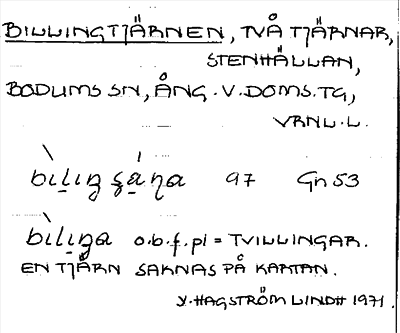 BILLINGTJÄRNEN, TVÅ TJÄRNAR,
STENHÄLLAN,
BODUMS SN, ÅNG. V. DOMS. TG,
VRNL. L.
97 Gn 53
o.b.f. pl = TVILLINGAR.
EN TJÄRN SAKNAS PÅ KARTAN.
Y. HAGSTRÖM LINDH 1971.